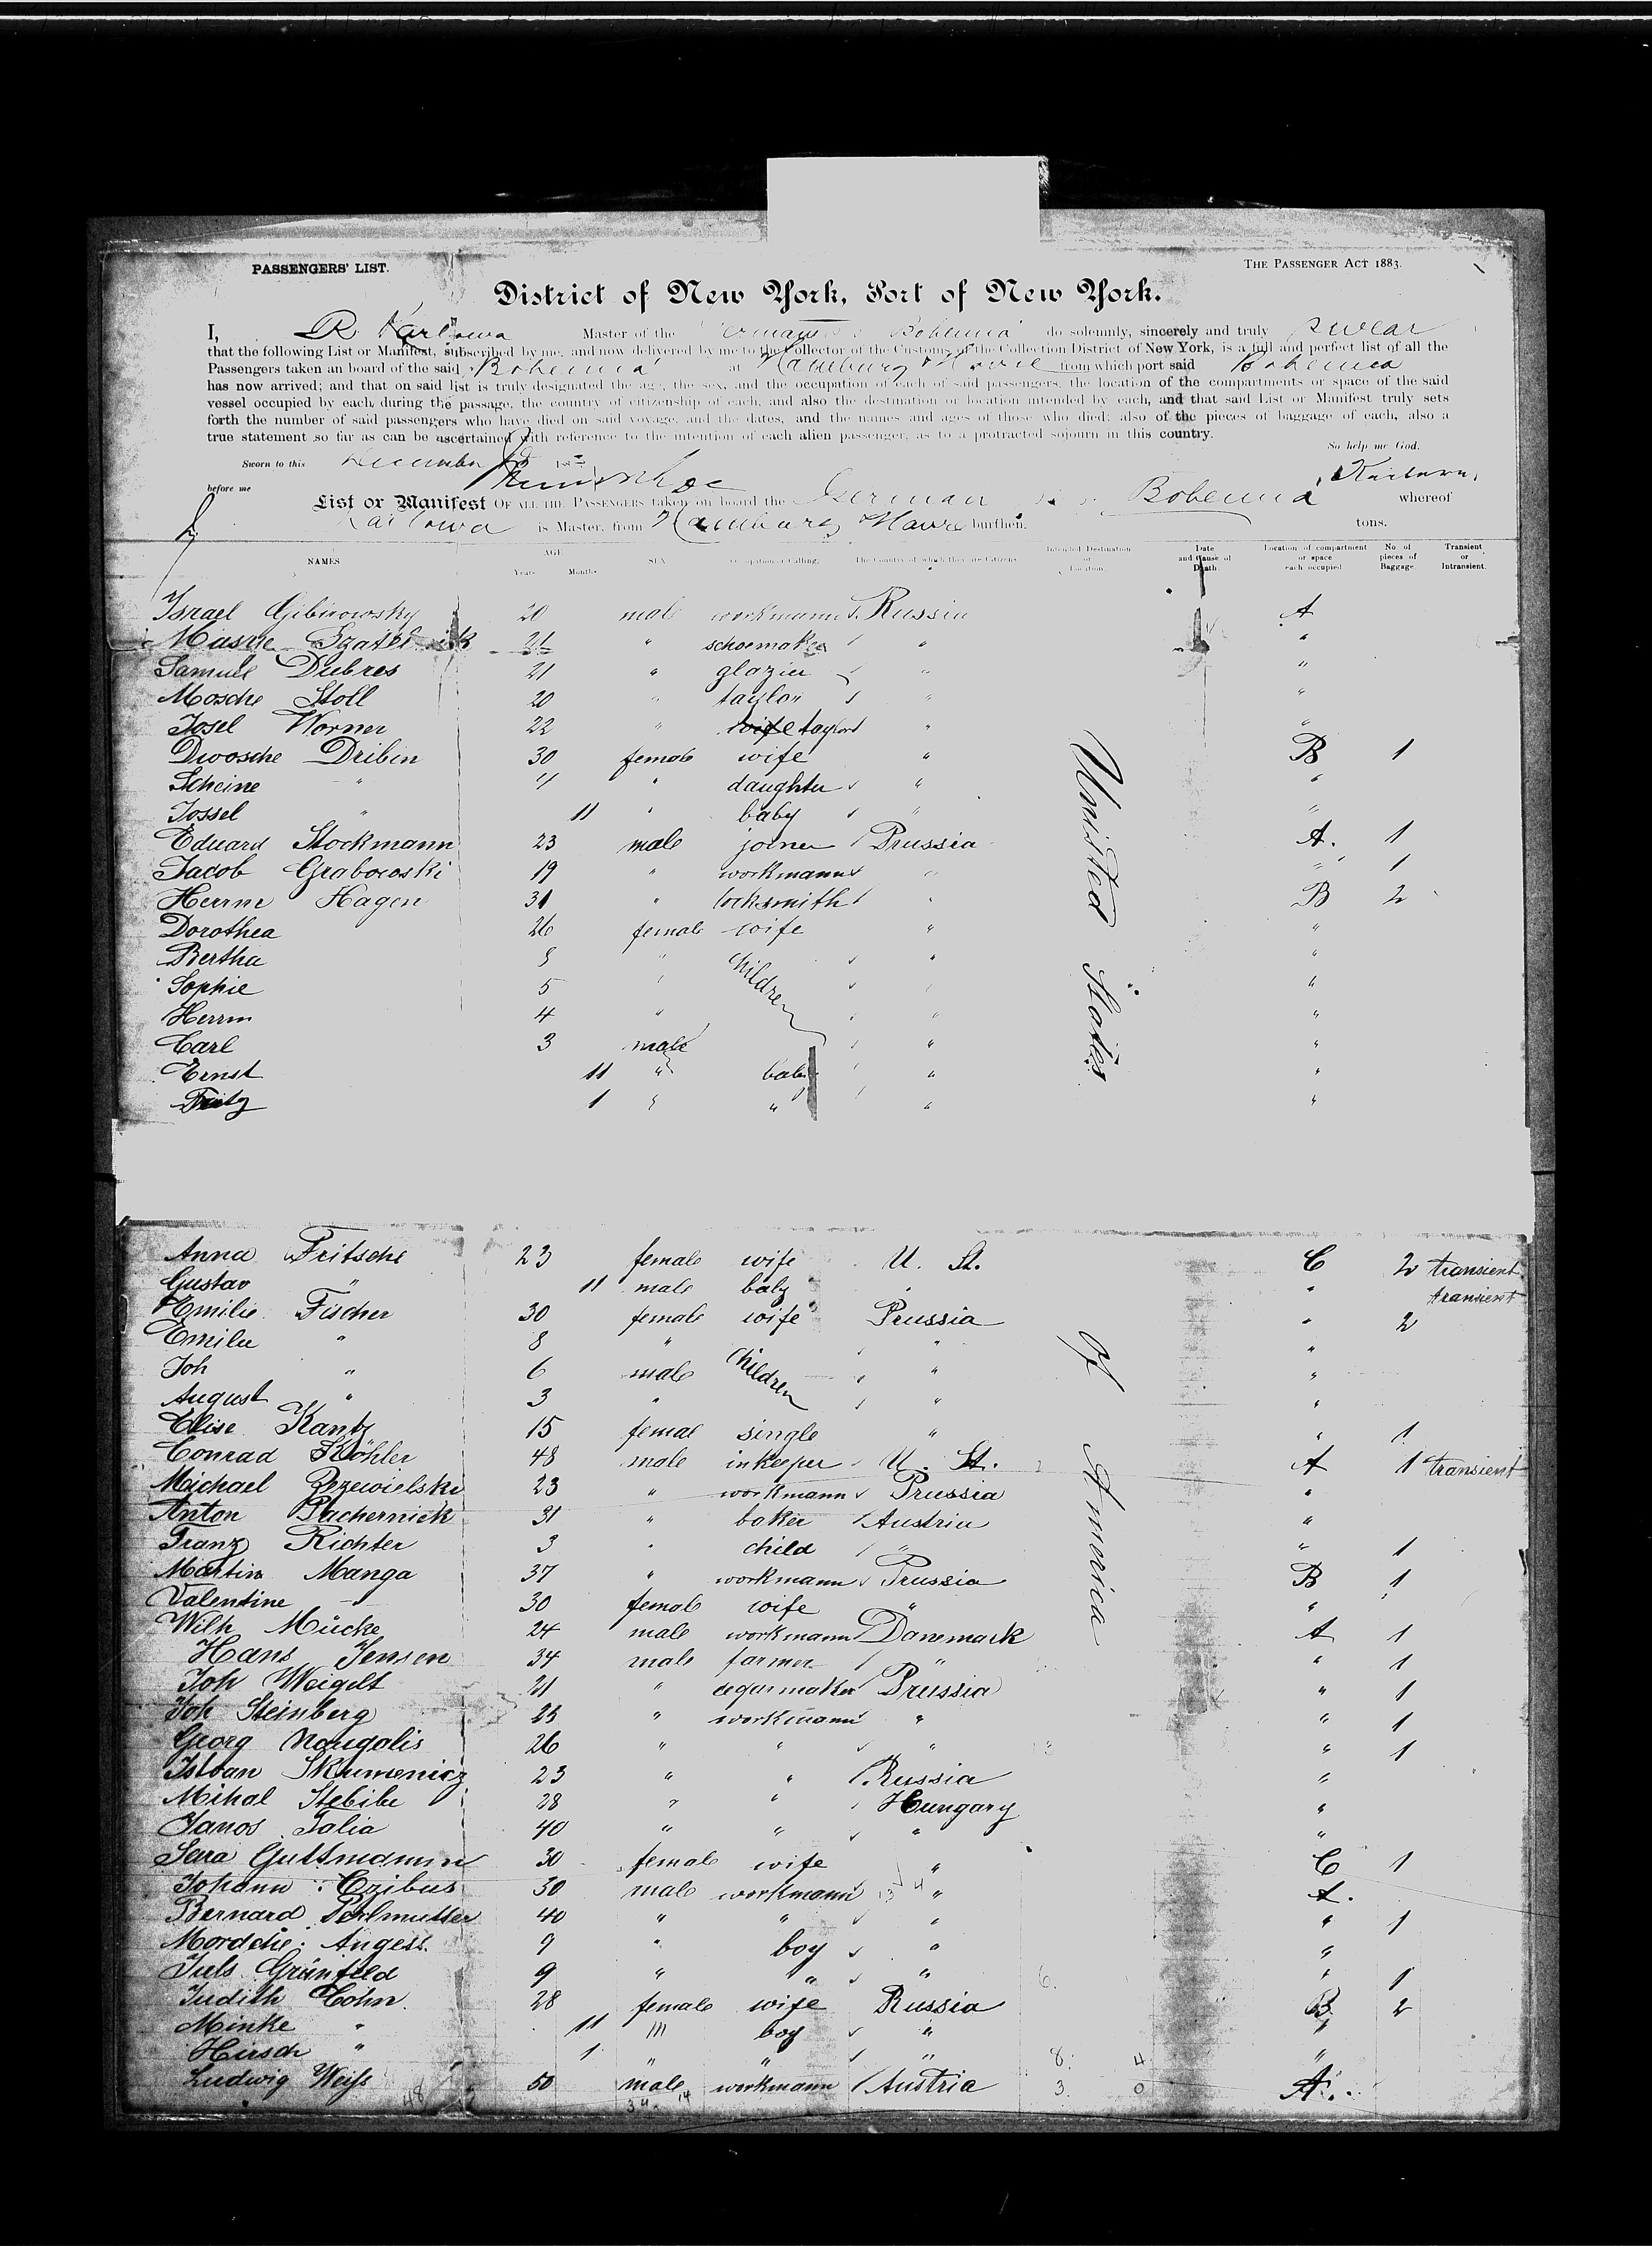 PASSENGERS' LIST. THE PASSENGER ACT 1883.
District of New York, Port of New York.
I, R. Karlowa Master of the German Bohemia do solemnly, sincerely and truly swear
that the following List or Manifest, subscribed by me, and now delivered by me to the Collector of the Customs of the Collection District of New York, is a full and perfect list of all the
Passengers taken on board of the said Bohemia at Hamburg Havre from which port said Bohemia
has now arrived; and that on said list is truly designated the age, the sex, and the occupation of each of said passengers, the location of the compartments or space of the said
vessel occupied by each during the passage, the country of citizenship of each, and also the destination or location intended by each, and that said List or Manifest truly sets
forth the number of said passengers who have died on said voyage, and the dates, and the names and ages of those who died; also of the pieces of baggage of each, also a
true statement so far as can be ascertained with reference to the intention of each alien passenger, as to a protracted sojourn in this country.
So help me God.
Sworn to this December 188
before me Karlowa
List or Manifest OF ALL THE PASSENGERS taken on board the German Bohemia whereof
Karlowa is Master, from Hamburg Havre burthen. tons.
NAMES AGE Years Months SEX Occupation or Calling. The Country of which they are Citizens Intended Destination or Location. Date and Cause of Death. Location of compartment or space each occupied No. of pieces of Baggage. Transient or Intransient.
Israel 20 male workmann Russia A
21 " schoemaker " "
Samuel Dubres 21 " glazier " "
Mosche Stoll 20 " taylor " "
Josel Worner 22 " wife taylor " "
Dwosche Dribin 30 female wife " B 1
Scheine " 4 " daughter " "
Jossel " 11 " baby " "
Eduard Stockmann 23 male joiner Prussia A. 1
Jacob Grabowski 19 " workmann " " 1
Herrm Hagen 31 " locksmith " B 2
Dorothea 26 female wife " "
Bertha " children " "
Sophie 5 " " "
Herrm 4 " " "
Carl 3 male " "
Ernst 11 " baby " "
Fritz 1 " " " "
United States
Anna Fritsche 23 female wife U. St. C 2 transient
Gustav " 11 male baby " " transient
Emilie Fischer 30 female wife Prussia " 2
Emilie " 8 " children " "
Joh " 6 male " "
August " 3 " " "
Elise Kantz 15 femal single " " 1
Conrad Köhler 48 male inkeeper U. St. A 1 transient
Michael 23 " workmann Prussia "
Anton Pachernick 31 " baker Austria "
Franz Richter 3 " child " " 1
Martin Manga 37 " workmann Prussia B 1
Valentine 30 female wife " "
Wilh Mücke 24 male workmann Danemark A 1
Hans Jensen 34 male farmer " " 1
Joh Weigelt 21 " cegarmaker Prussia " 1
Joh Steinberg 23 " workmann " " 1
Georg Naugalis 26 " " " " 1
Istvan Skumenicz 23 " " Russia "
Mihal Stebile 28 " " Hungary "
Janos Talia 40 " " " "
Sara Guttmann 30 female wife " C 1
Johann Czibus 30 male workmann " A.
Bernard Perlmutter 40 " " " " 1
Mordche Angess. 9 " boy " "
Juls Grünfeld 9 " " " " 1
Judith Cohn 28 female wife Russia B 2
Minke " 11 " boy " "
Hirsch " 1 " " " "
Ludwig Weiss 50 male workmann Austria A.
of America
48 34 14